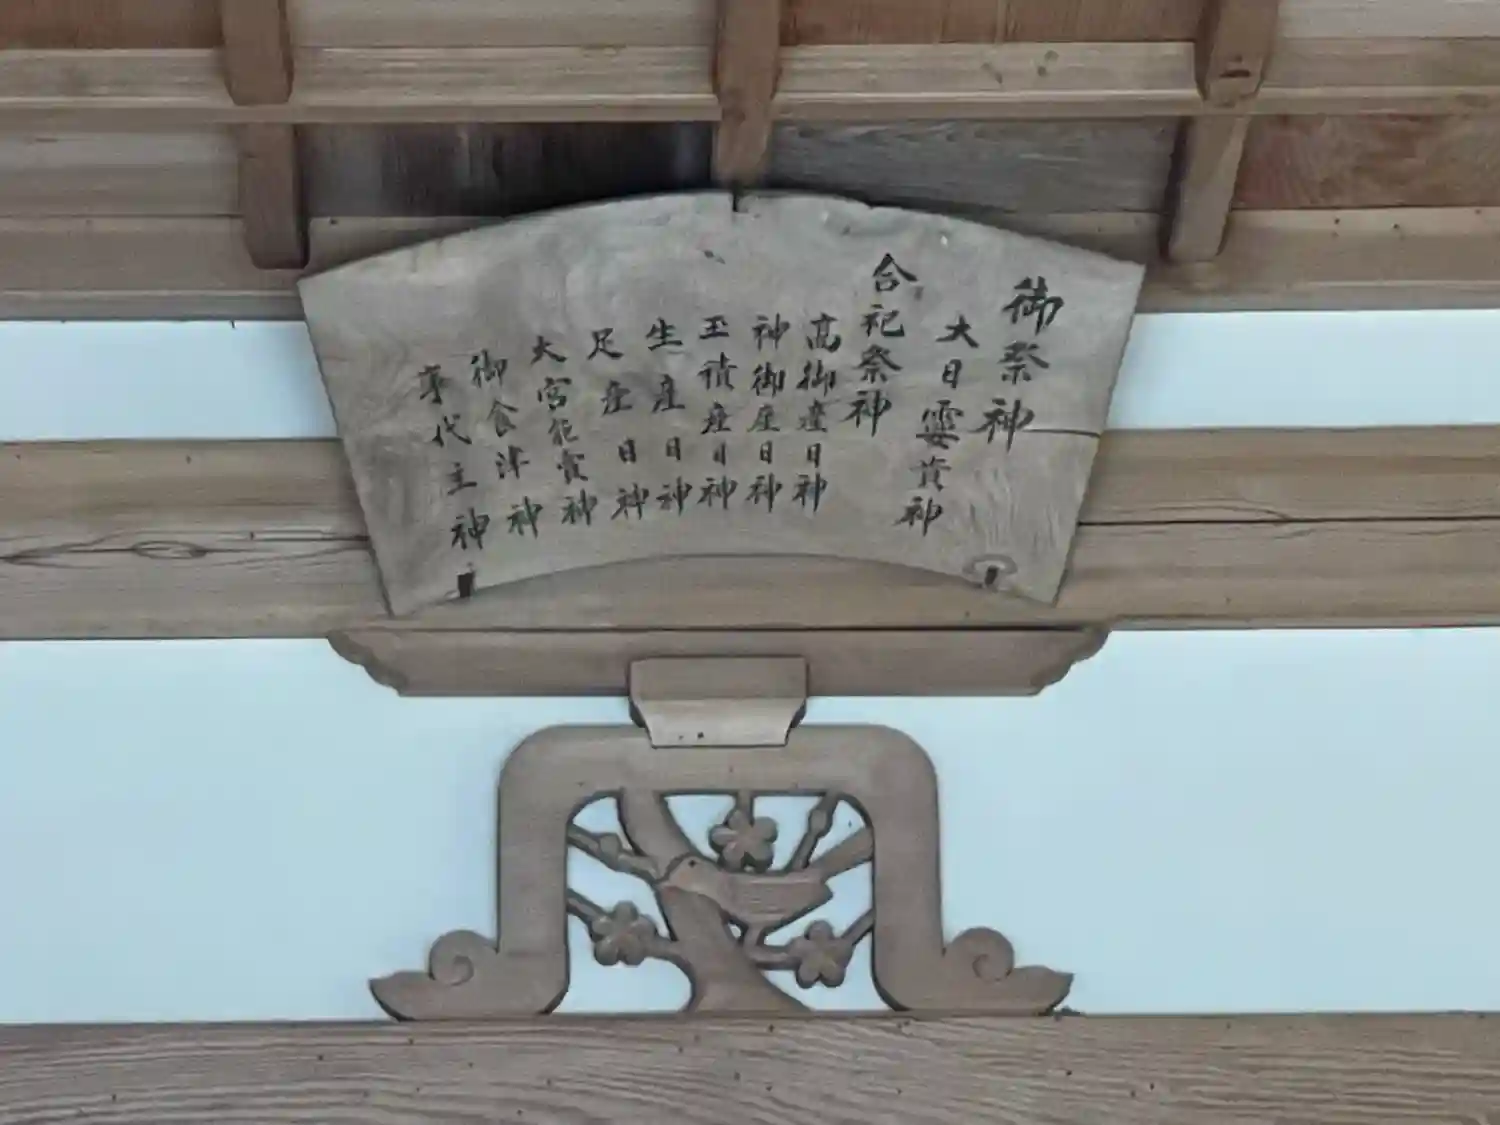 御祭神
大日孁貴神
合祀祭神
高御産日神
神御産日神
玉積産日神
生産日神
足産日神
大宮能賣神
御食津神
事代主神